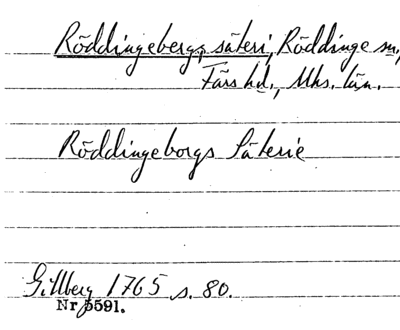 Röddingebergs säteri, Röddinge sn,
Färs hd., Mhs. län.
Röddingeborgs Säterie
Gillberg 1765 s. 80.
Nr 5591.